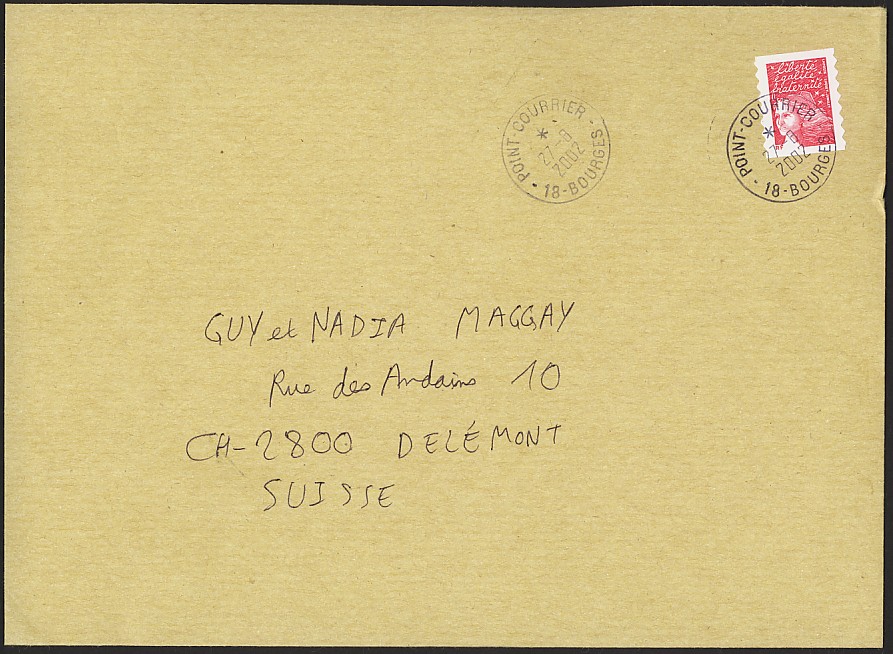 liberté
égalité
fraternité
POINT-COURRIER
27-8
2002
18-BOURGES
POINT-COURRIER
27-8
2002
18-BOURGES
GUY et NADIA MAGGAY
Rue des Andains 10
CH-2800 DELÉMONT
SUISSE